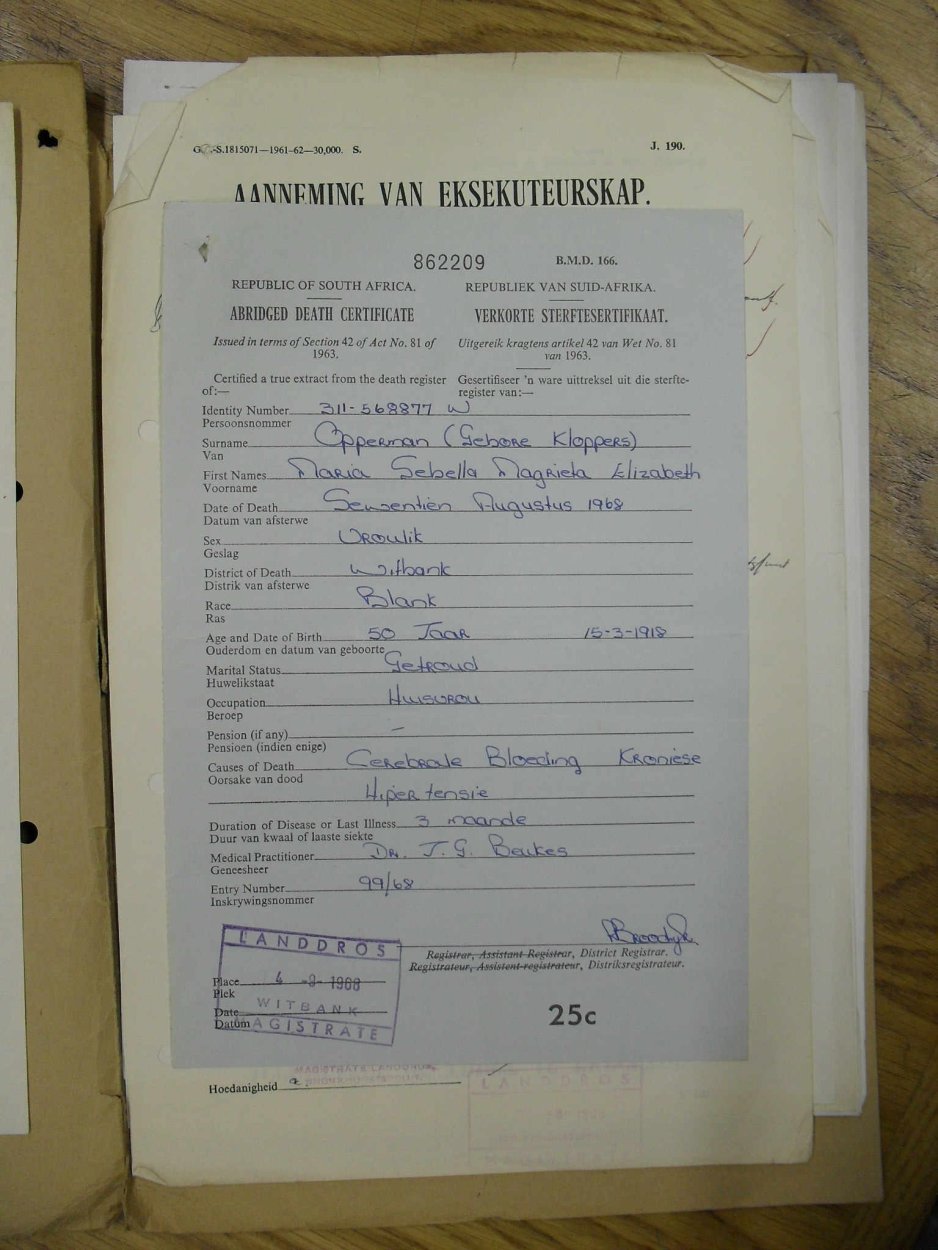 -S.1815071—1961-62—30,000. S.
J. 190.
AANNEMING VAN EKSEKUTEURSKAP.
862209
B.M.D. 166.
REPUBLIC OF SOUTH AFRICA.
REPUBLIEK VAN SUID-AFRIKA.
ABRIDGED DEATH CERTIFICATE
VERKORTE STERFTESERTIFIKAAT.
Issued in terms of Section 42 of Act No. 81 of
1963.
Uitgereik kragtens artikel 42 van Wet No. 81
van 1963.
Certified a true extract from the death register
of:—
Gesertifiseer 'n ware uittreksel uit die sterfte-
register van:—
Identity Number 311-568877 W
Persoonsnommer
Surname Opperman (Gebore Kloppers)
Van
First Names Maria Sebella Magrieta Elizabeth
Voorname
Date of Death Sewentien Augustus 1968
Datum van afsterwe
Sex Vroulik
Geslag
District of Death Witbank
Distrik van afsterwe
Race Blank
Ras
Age and Date of Birth 50 Jaar 15-3-1918
Ouderdom en datum van geboorte
Marital Status Getroud
Huwelikstaat
Occupation Huisvrou
Beroep
Pension (if any) —
Pensioen (indien enige)
Causes of Death Cerebrale Bloeding Kroniese
Oorsake van dood
Hipertensie
Duration of Disease or Last Illness 3 maande
Duur van kwaal of laaste siekte
Medical Practitioner Dr. J. G. Beukes
Geneesheer
Entry Number 99/68
Inskrywingsnommer
Registrar, Assistant Registrar, District Registrar.
Registrateur, Assistent-registrateur, Distriksregistrateur.
LANDDROS
Place 4 -9- 1968
Plek
WITBANK
Date
Datum
MAGISTRATE
25c
Hoedanigheid
LANDDROS